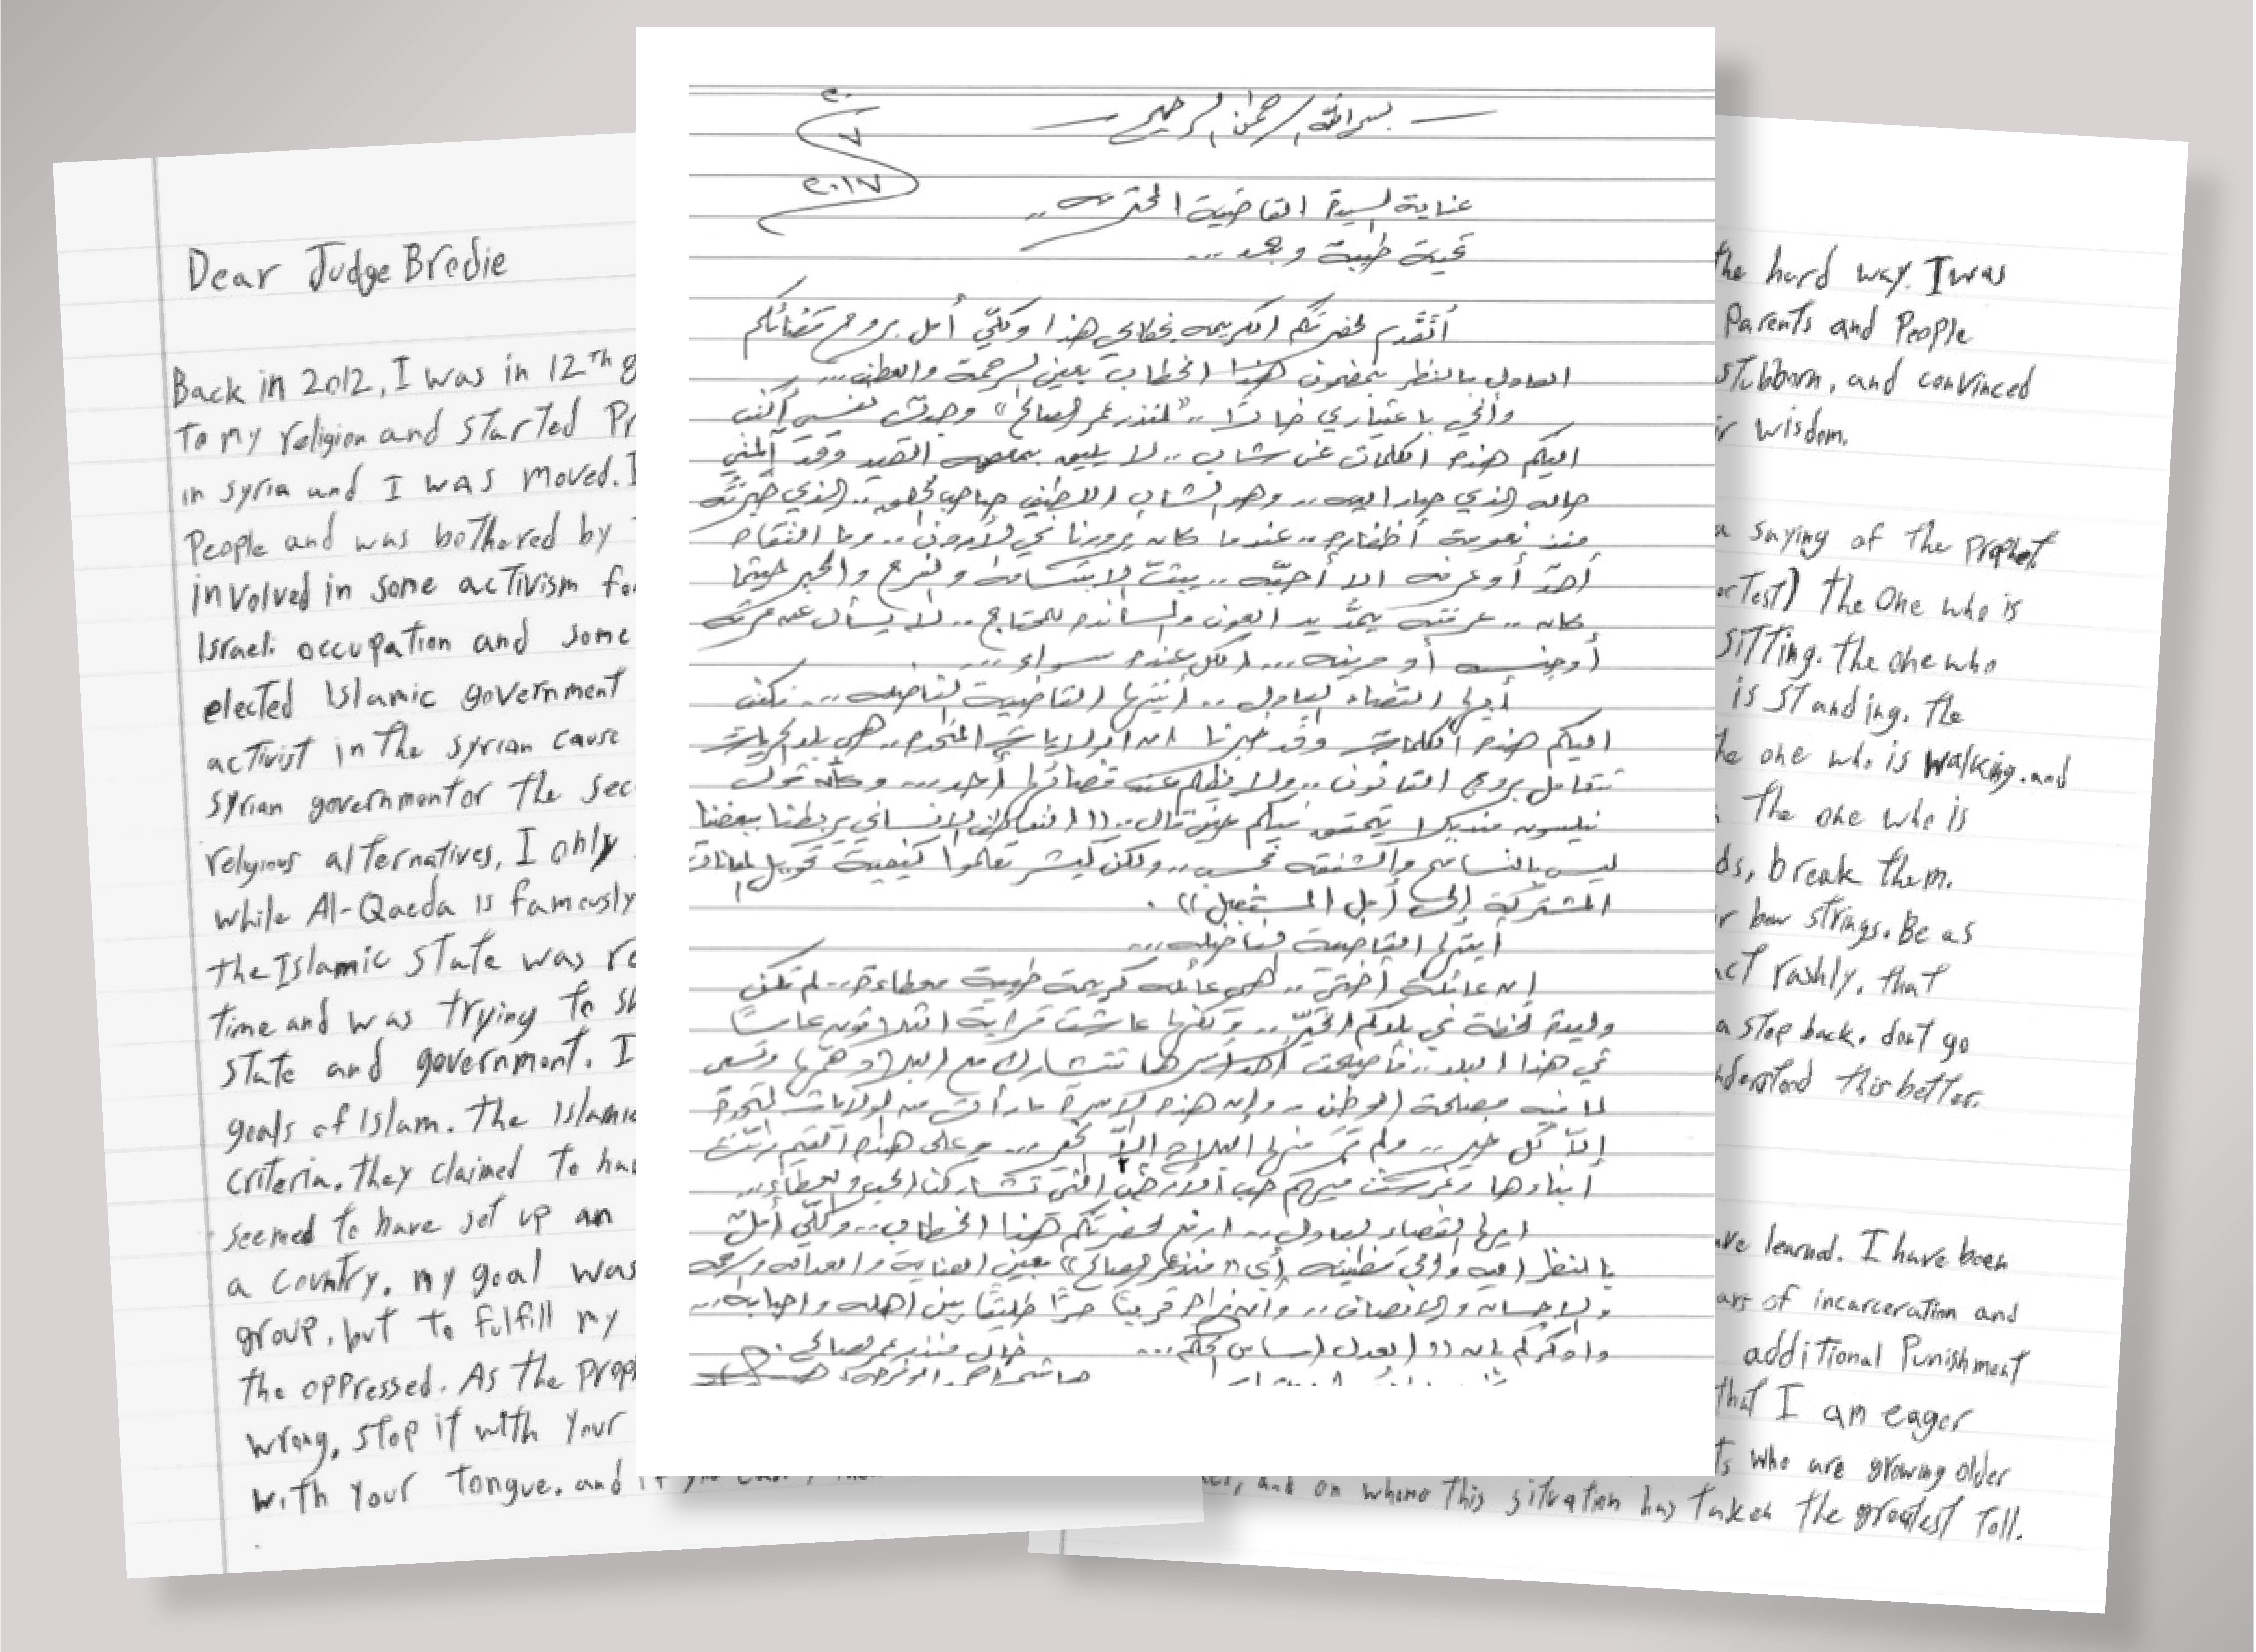 Dear Judge Brodie
Back in 2012, I was in 12th g
to my religion and started Pr
in syria and I was moved. I
People and was bothered by
involved in some activism fo
Israeli occupation and some
elected Islamic government
activist in the syrian cause
syrian government or the sec
religious alternatives, I only
while Al-Qaeda is famously
the Islamic State was re
time and was trying to sh
state and government. I
goals of Islam. The Islamic
criteria. they claimed to hav
seemed to have set up an
a country. my goal was
group, but to fulfill my
the oppressed. As the proph
wrong, stop it with your
with your tongue. and if you can't
بسم الله الرحمن الرحيم
٢٠
٧
٢٠١٧
عناية السيدة القاضية المحترمه ..
تحية طيبة وبعد ...
أتقدم لحضرتكم الكريمه بخطابي هذا وكلّي أمل بروح قضائكم
العادل بالنظر بمضمون هذا الخطاب بعين الرحمة والعطف ...
وأني باعتباري خالاً .. "لمنذر عمر صالح" وجدت نفسي أكتب
اليكم هذه الكلمات عن شاب .. لا يليق بمعصمه القيد وقد آلمني
حاله الذي صار اليه .. وهو الشاب اللطيف صاحب الخلق .. الذي خبرته
منذ نعومة أظفاره .. عندما كان يزورنا في الأردن .. وما التقاه
أحدٌ أو عرفه الا أحبّه .. يبثّ الابتسامه والفرح والخير حيثما
كان .. عرفته يمدّ يد العون والمسانده للمحتاج .. لا يسأل عن عرقه
أو جنسه أو دينه ... الكل عنده سواء ...
أيها القضاء العادل .. أيتها القاضية الفاضله ... نكتب
اليكم هذه الكلمات وقد خبرنا ان الولايات المتحده .. هي بلد الحريات
تتعامل بروح القانون .. ولا يظلم عند قضائها أحد ... وكأن قول
نيلسون منديلا يتحقق فيكم حين قال .. (( التعاطف الانساني يربطنا ببعضنا
ليس بالتسامح والشفقه فحسب .. ولكن كبشر تعلموا كيفية تحويل المعاناة
المشتركة إلى أمل المستقبل )) .
أيتها القاضية الفاضله ...
إن عائلة أختي .. لهي عائله كريمة طيبة معطاءة .. لم تكن
وليدة لحظة في بلدكم الخيّر .. ولكنها عاشت قرابة الثلاثون عاماً
في هذا البلد .. فأصبحت تتشارك مع البلاد همّها وتسعى
لما فيه مصلحة الوطن .. وإن هذه الاسرة ما رأت من الولايات المتحدة
إلاّ كل خير .. ولم تر منها البلاد إلاّ الخير ... وعلى هذه القيم ربّت
أبناءها وغرست فيهم حب الأرض التي تشاركنا الحب والعطاء ...
ايها القضاء العادل .. ارفع لحضرتكم هذا الخطاب .. وكلّي أمل
بالنظر اليه والى قضية "منذر عمر صالح" بعين العناية والعداله والرحمه
والاحسان والانصاف .. وأن نراه قريباً حرّاً طليقاً بين اهله واحبابه ...
واذكركم بان (( العدل اساس الحكم ...
خال منذر عمر صالح
the hard way. I was
Parents and People
stubborn, and convinced
wisdom.
a saying of the prophet.
or Test) the One who is
sitting. the one who
is standing. the
the one who is walking. and
the one who is
break them.
bow strings. Be as
act rashly. that
a step back. don't go
understand this better.
have learned. I have been
years of incarceration and
additional Punishment
that I am eager
who are growing older
and on whome this situation has taken the greatest toll.